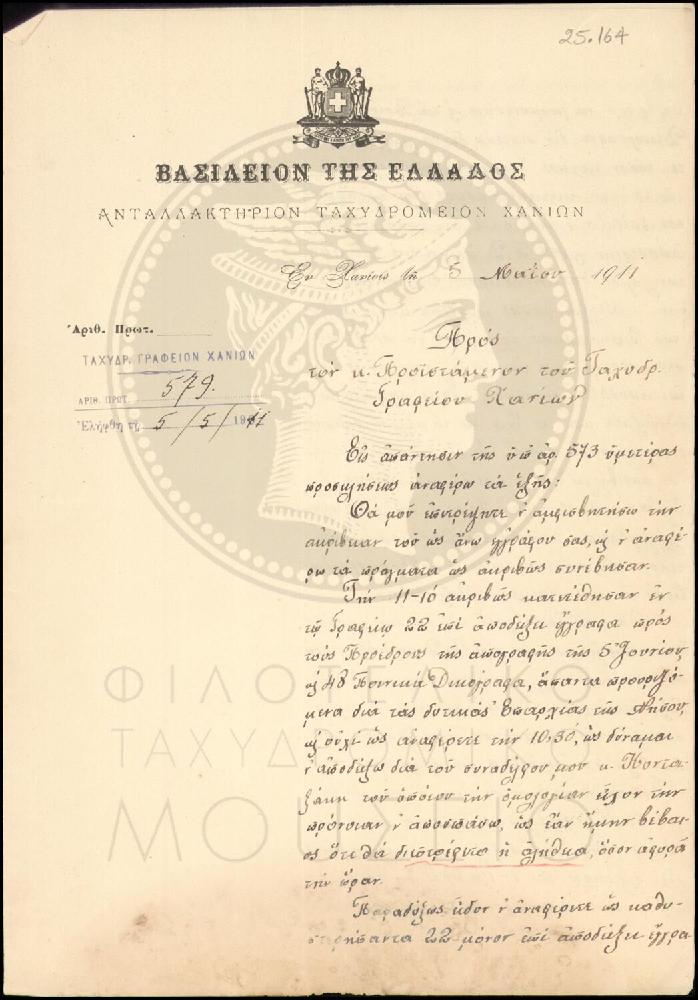 25.164
ΒΑΣΙΛΕΙΟΝ ΤΗΣ ΕΛΛΑΔΟΣ
ΑΝΤΑΛΛΑΚΤΗΡΙΟΝ ΤΑΧΥΔΡΟΜΕΙΟΝ ΧΑΝΙΩΝ
Ἐν Χανίοις τῇ 5 Μαΐου 1911
Ἀριθ. Πρωτ.
ΤΑΧΥΔΡ. ΓΡΑΦΕΙΟΝ ΧΑΝΙΩΝ
ΑΡΙΘ. ΠΡΩΤ. 579.
Ἐλήφθη τῇ 5/5/1911
Πρός
τόν κ. Προϊστάμενον τοῦ Ταχυδρ.
Γραφείου Χανίων
Εἰς ἀπάντησιν τῆς ὑπ' ἀρ. 573 ὑμετέρας
προσκλήσεως ἀναφέρω τά ἑξῆς:
Θά μοῦ ἐπιτρέψητε ν' ἀμφισβητήσω τήν
ἀκρίβειαν τοῦ ὡς ἄνω ἐγγράφου σας, κ ν' ἀναφέ-
ρω τά πράγματα ὡς ἀκριβῶς συνέβησαν.
Τήν 11-10 ἀκριβῶς κατετέθησαν ἐν
τῷ Γραφείῳ 22 ἐπί ἀποδείξει ἔγγραφα πρός
τούς Προέδρους τῆς ἀπογραφῆς τῆς 5 Ἰουνίου,
κ 48 Ποινικά Δικόγραφα, ἅπαντα προοριζό-
μενα διά τάς δυτικάς Ἐπαρχίας τῆς Νήσου,
κ οὐχί ὡς ἀναφέρετε τήν 10.30, ὡς δύναμαι
ν' ἀποδείξω διά τοῦ συναδέλφου μου κ. Κοντα-
ξάκη τοῦ ὁποίου τήν ὁμολογίαν εἶχον τήν
πρόνοιαν ν' ἀποσπάσω, ὡς ἐάν ἤμην βέβαι-
ος ὅτι θά διεστρέφετο ἡ ἀλήθεια, ὅσον ἀφορᾷ
τήν ὥραν.
Παραδόξως εἶδον ν' ἀναφέρετε ὡς καθυ-
στερήσαντα 22 μόνον ἐπί ἀποδείξει ἔγγρα-
ΦΙΛΟΤΕΛΙΚΟ
ΤΑΧΥΔΡΟΜΙΚΟ
ΜΟΥΣΕΙΟ